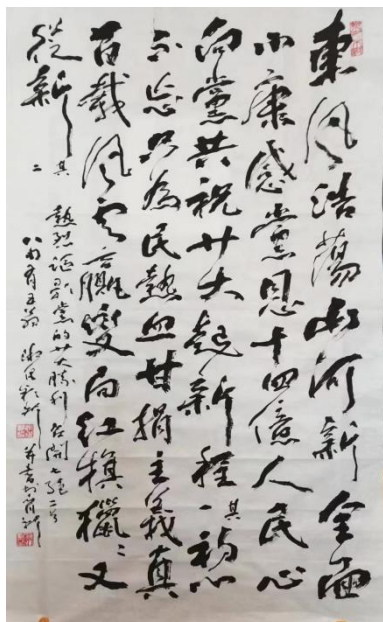 東風浩蕩山河新全面
小康感黨恩十四億人民心
向黨共祝廿大起新程其一初心
不忘只為民熱血甘捐主義真
百載風雲贏變局紅旗獵〻又
從新其二
熱烈謳歌黨的廿大勝利召開七絕二首
八旬有五翁
并書於